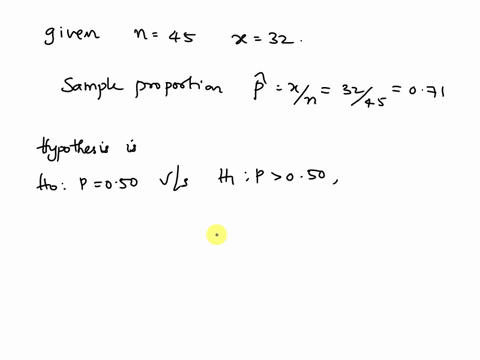 given n = 45 x = 32.
Sample proportion p̂ = x/n = 32/45 = 0.71
Hypothesis is
H0: P = 0.50 v/s H1: P > 0.50,